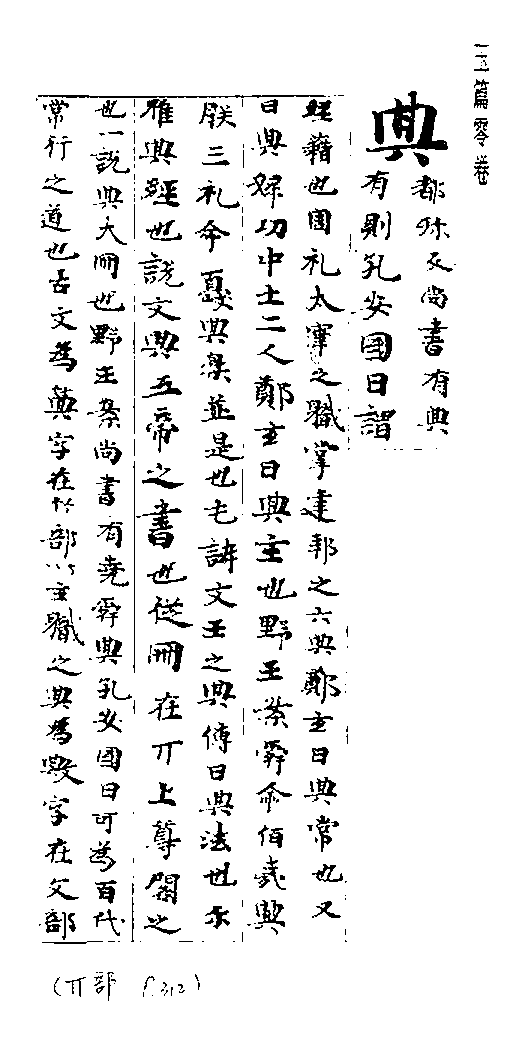 玉篇零卷
典 都殄反尚書有典
有則孔安國曰謂
經籍也周礼太宰之職掌建邦之六典鄭玄曰典常也又
曰典婦功中士二人鄭玄曰典主也野王案舜命伯夷典
朕三礼命夔典樂並是也毛詩文王之典傳曰典法也尒
雅典經也說文典五帝之書也從冊在丌上尊閣之
也一說典大冊也野王案尚書有堯舜典孔安國曰可為百代
常行之道也古文為𥮏字在竹部以主職之典為敟字在攴部
(丌部 P.312)